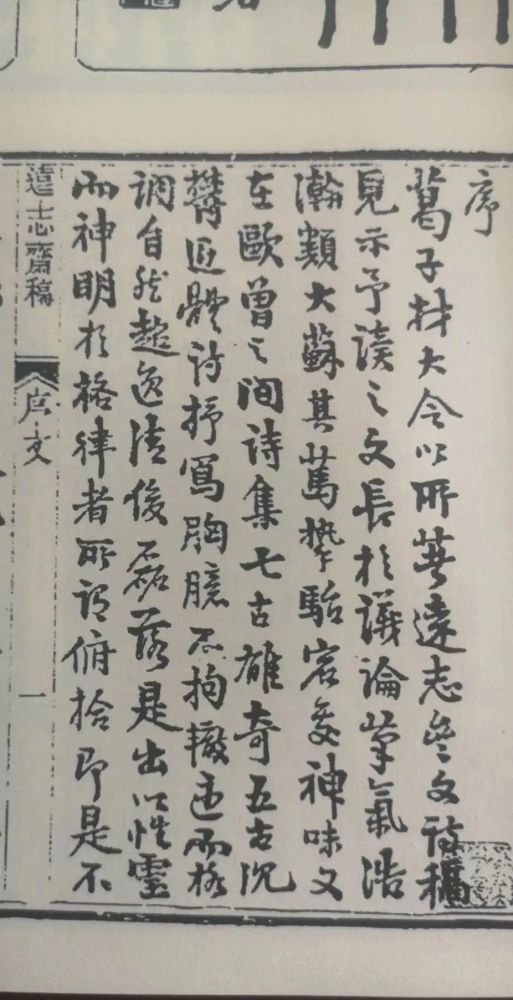 序
葛子材大令以所著遠志齋文詩稿
見示予讀之文長於議論筆氣浩
瀚類大蘇其篤摯駘宕處神味又
在歐曾之間詩集七古雄奇五古沉
鬱近體詩抒寫胸臆不拘轍迹而格
調自然超逸清俊磊落是出以性靈
而神明於格律者所謂俯拾即是不
遠志齋稿
序文
一